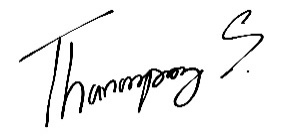 Thanompong S.